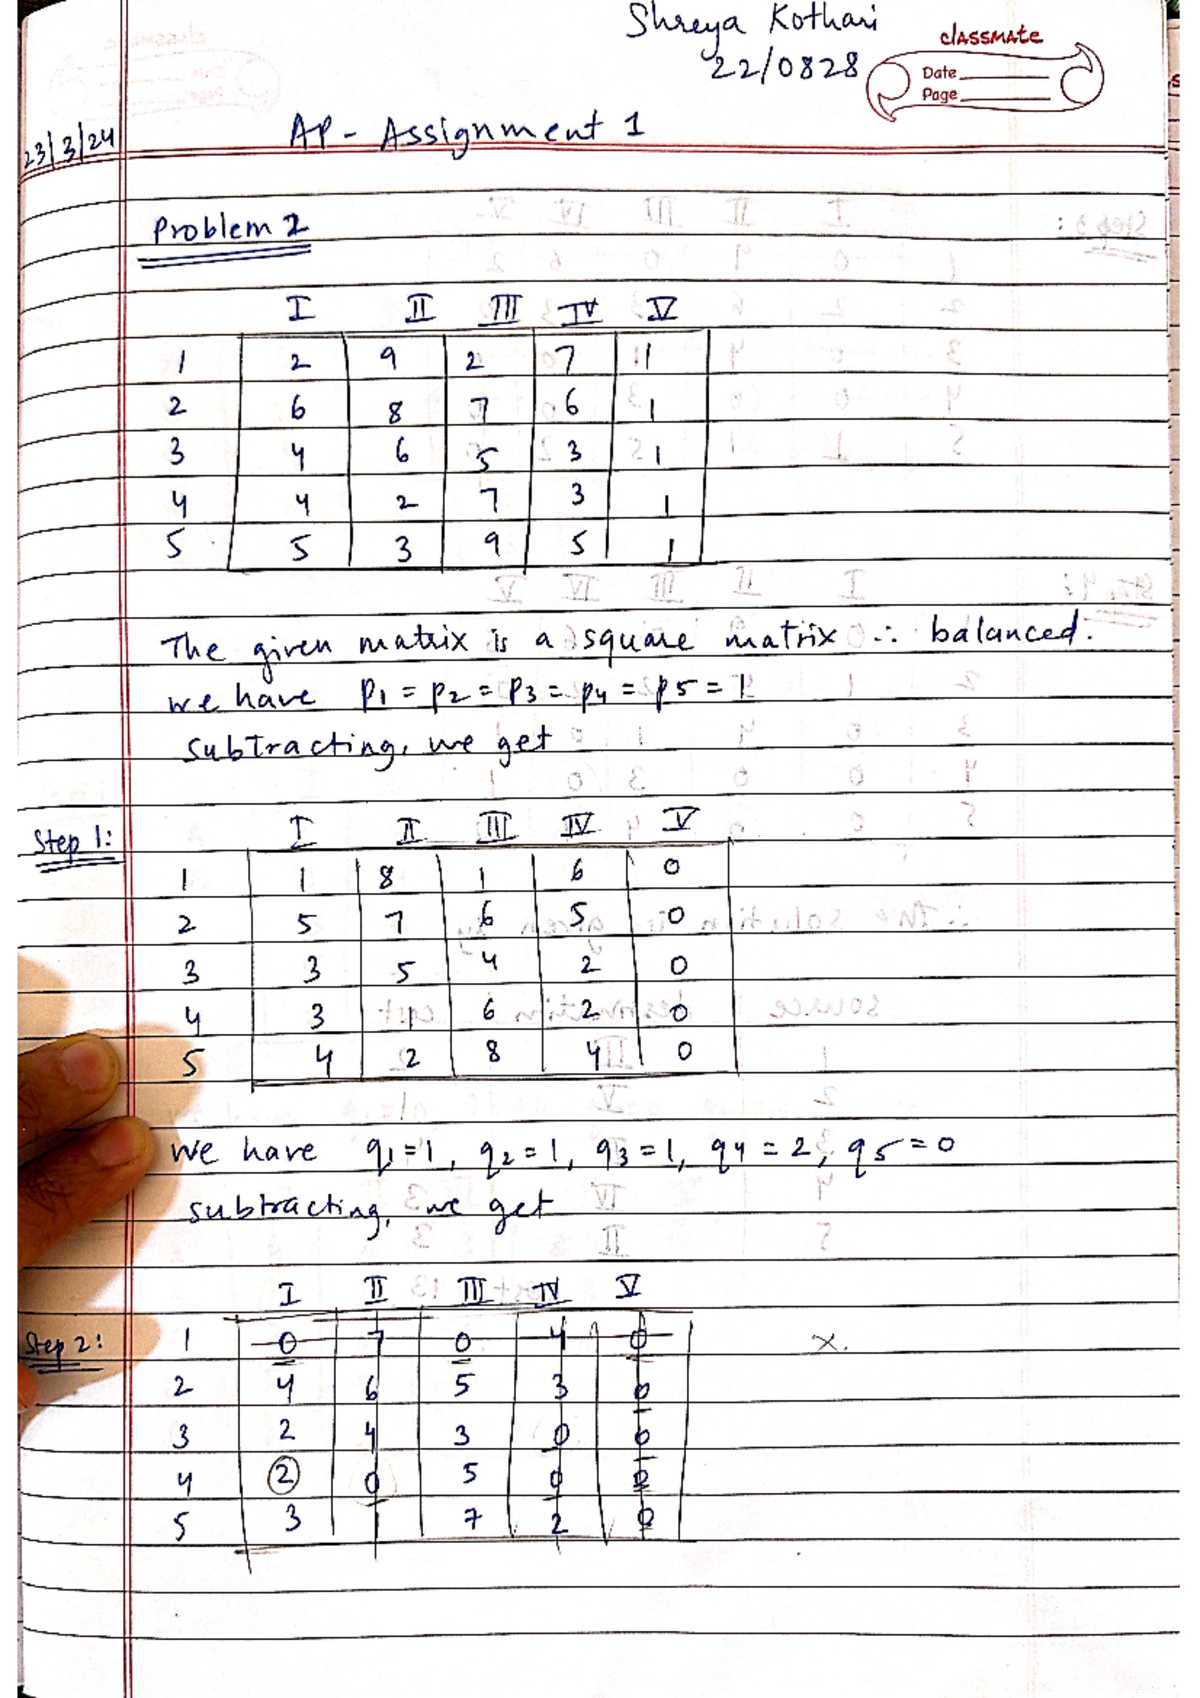 Shreya Kothari
22/0828
classmate
Date
Page
23/3/24
AP - Assignment 1
Problem 2
I II III IV V
1 2 9 2 7 1
2 6 8 7 6 1
3 4 6 5 3 1
4 4 2 7 3 1
5 5 3 9 5 1
The given matrix is a square matrix ∴ balanced.
we have p1 = p2 = p3 = p4 = p5 = 1
subtracting, we get
Step 1:
I II III IV V
1 1 8 1 6 0
2 5 7 6 5 0
3 3 5 4 2 0
4 3 1 6 2 0
5 4 2 8 4 0
we have q1 = 1, q2 = 1, q3 = 1, q4 = 2, q5 = 0
subtracting, we get
I II III IV V
Step 2:
1 0 7 0 4 0 x.
2 4 6 5 3 0
3 2 4 3 0 0
4 2 0 5 0 0
5 3 1 7 2 0